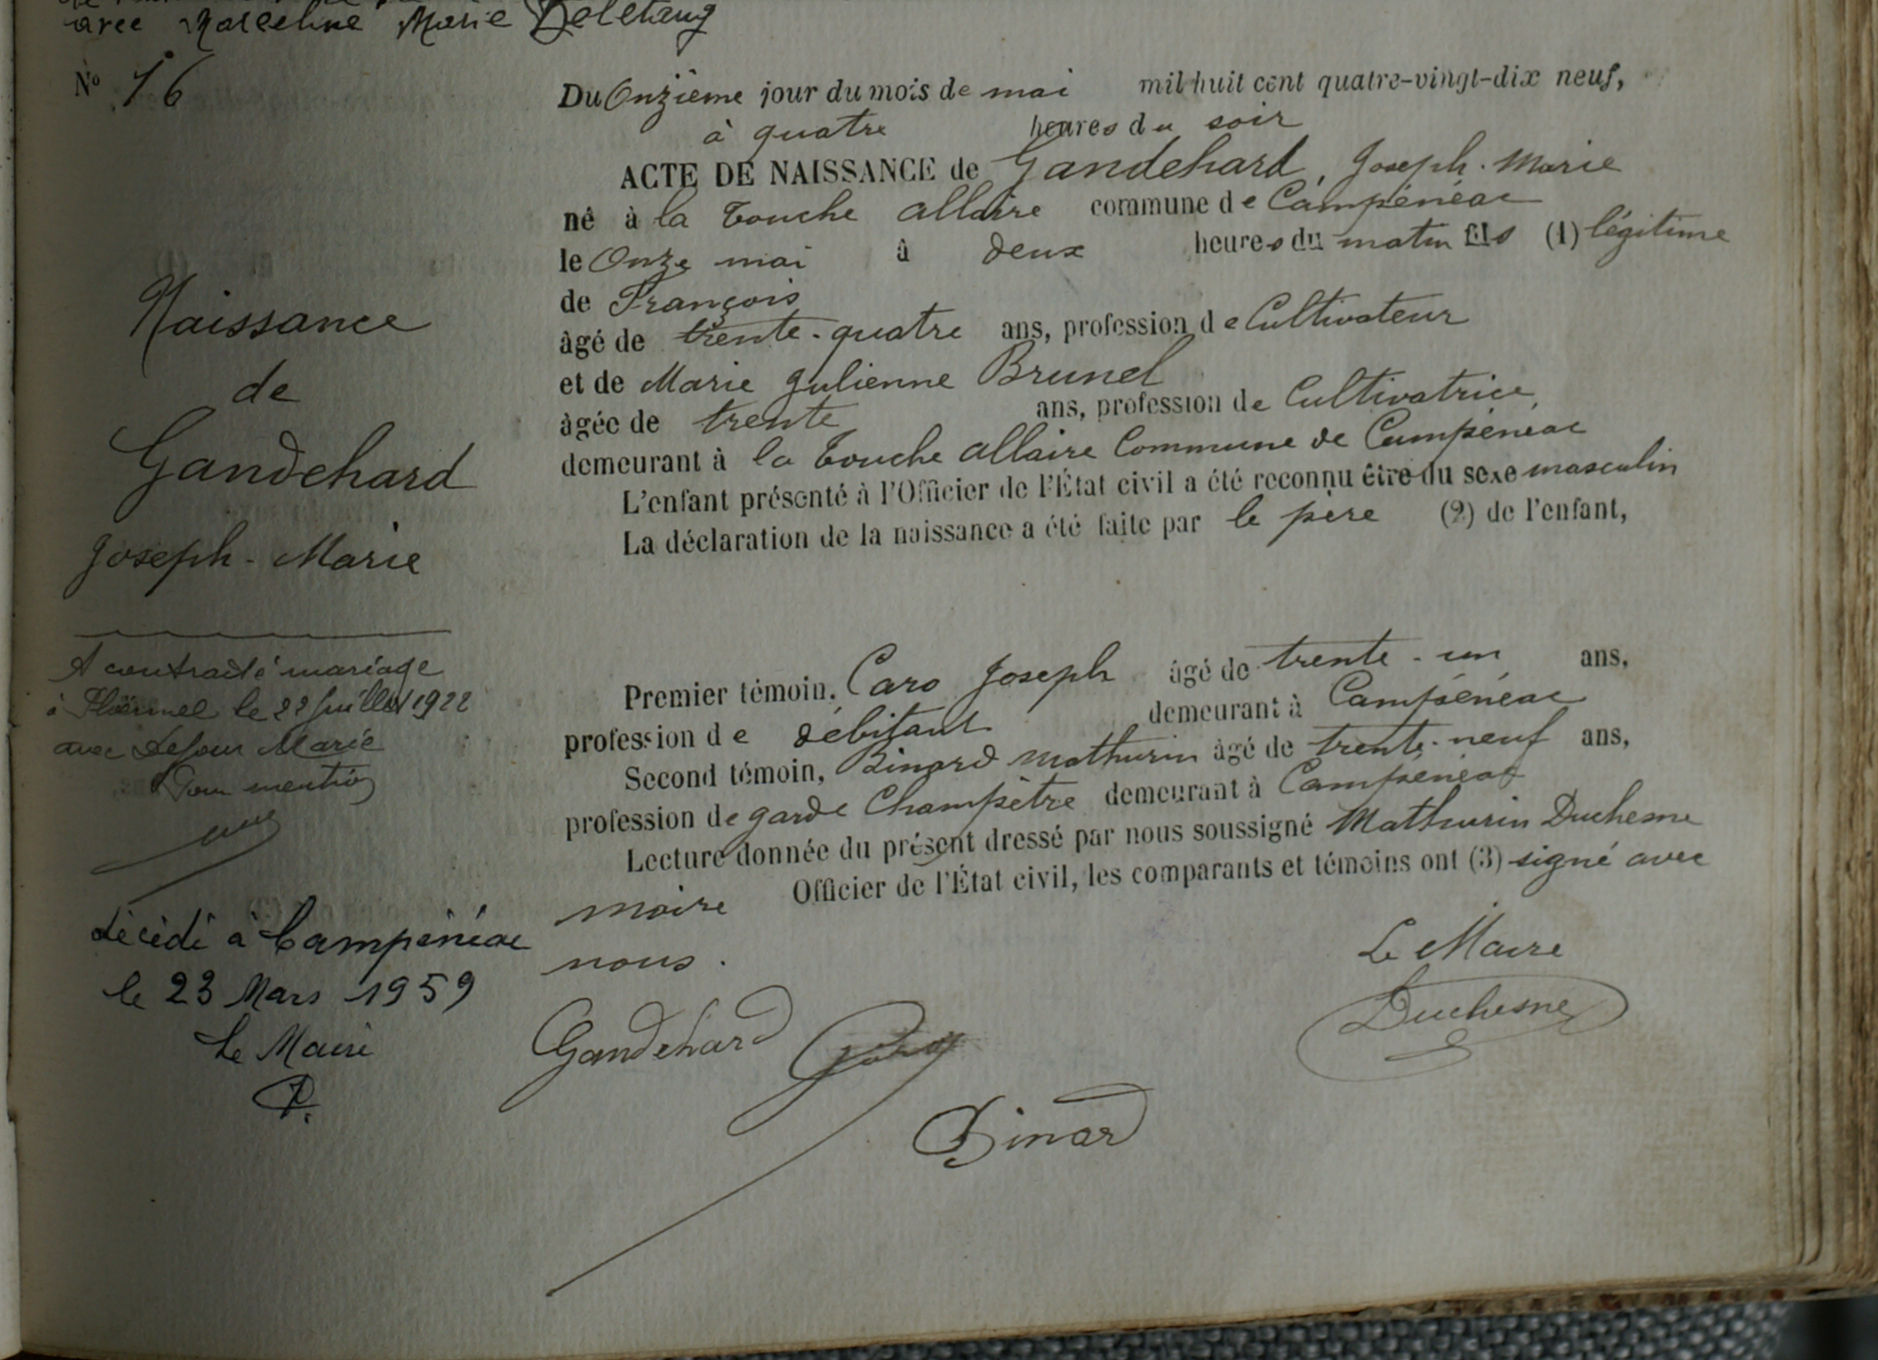 avec Marceline Marie Deletang
N° 16
Naissance
de
Gandehard
Joseph - Marie
A contracté mariage
à Ploërmel le 22 Juillet 1922
avec Lefour Marie
Pour mention
décédé à Campénéac
le 23 Mars 1959
Le Maire
Du Onzième jour du mois de mai mil huit cent quatre-vingt-dix neuf,
à quatre heures du soir
ACTE DE NAISSANCE de Gandehard, Joseph - Marie
né à la touche allaire commune de Campénéac
le Onze mai à deux heures du matin fils (1) légitime
de François
âgé de trente - quatre ans, profession de Cultivateur
et de Marie Julienne Brunel
âgée de trente ans, profession de Cultivatrice,
demeurant à la touche allaire Commune de Campénéac
L'enfant présenté à l'Officier de l'État civil a été reconnu être du sexe masculin
La déclaration de la naissance a été faite par le père (2) de l'enfant,
Premier témoin, Caro Joseph âgé de trente - un ans,
profession de débitant demeurant à Campénéac
Second témoin, Binard Mathurin âgé de trente - neuf ans,
profession de garde Champêtre demeurant à Campénéac
Lecture donnée du présent dressé par nous soussigné Mathurin Duchesne
maire Officier de l'État civil, les comparants et témoins ont (3) signé avec
nous.
Le Maire
Duchesne
Gandehard
Binard